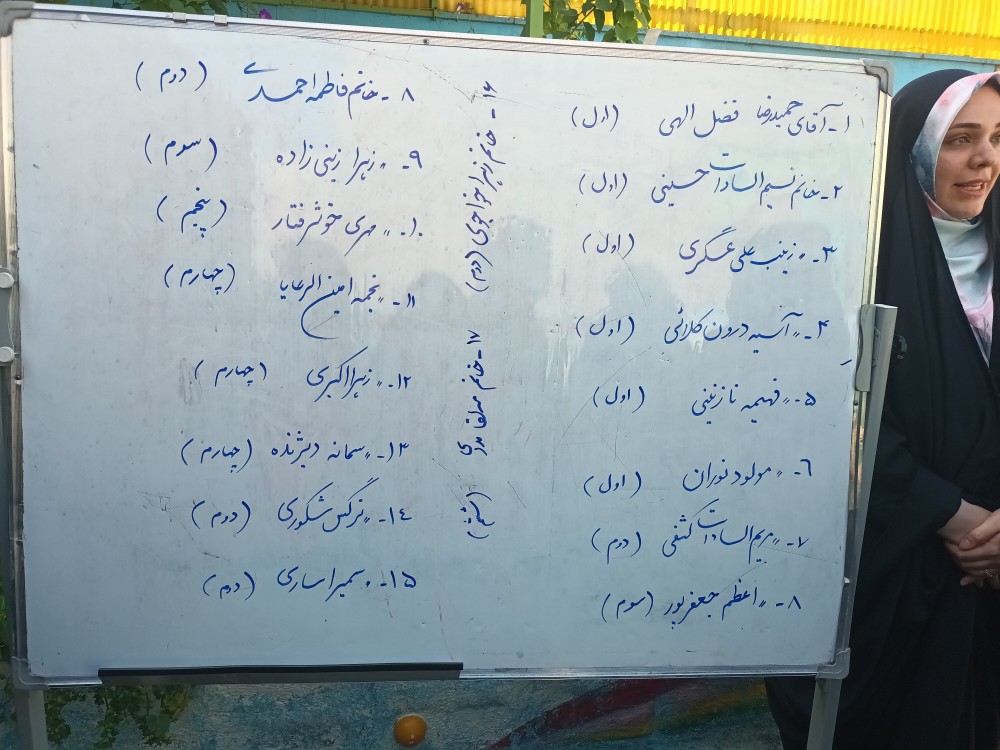 ۱- آقای حمیدرضا فضل الهی (اول)
۲- خانم نسیم السادات حسینی (اول)
۳- 〃 زینب علی عسگری (اول)
۴- 〃 آسیه درون کلائی (اول)
۵- 〃 فهیمه نازنینی (اول)
۶- 〃 مولود نوران (اول)
۷- 〃 مریم السادات کشفی (دوم)
۸- 〃 اعظم جعفرپور (سوم)
۱۶- خانم زهرا خواجوی (دوم)
۱۷- خانم مهلقا بدری (ششم)
۸- خانم فاطمه احمدی (دوم)
۹- 〃 زهرا زینی زاده (سوم)
۱۰- 〃 مهری خوشرفتار (پنجم)
۱۱- 〃 نجمه امین الرعایا (چهارم)
۱۲- 〃 زهرا اکبری (چهارم)
۱۳- 〃 سمانه دیژنده (چهارم)
۱۴- 〃 نرگس شکوری (دوم)
۱۵- 〃 سمیرا ساری (دوم)